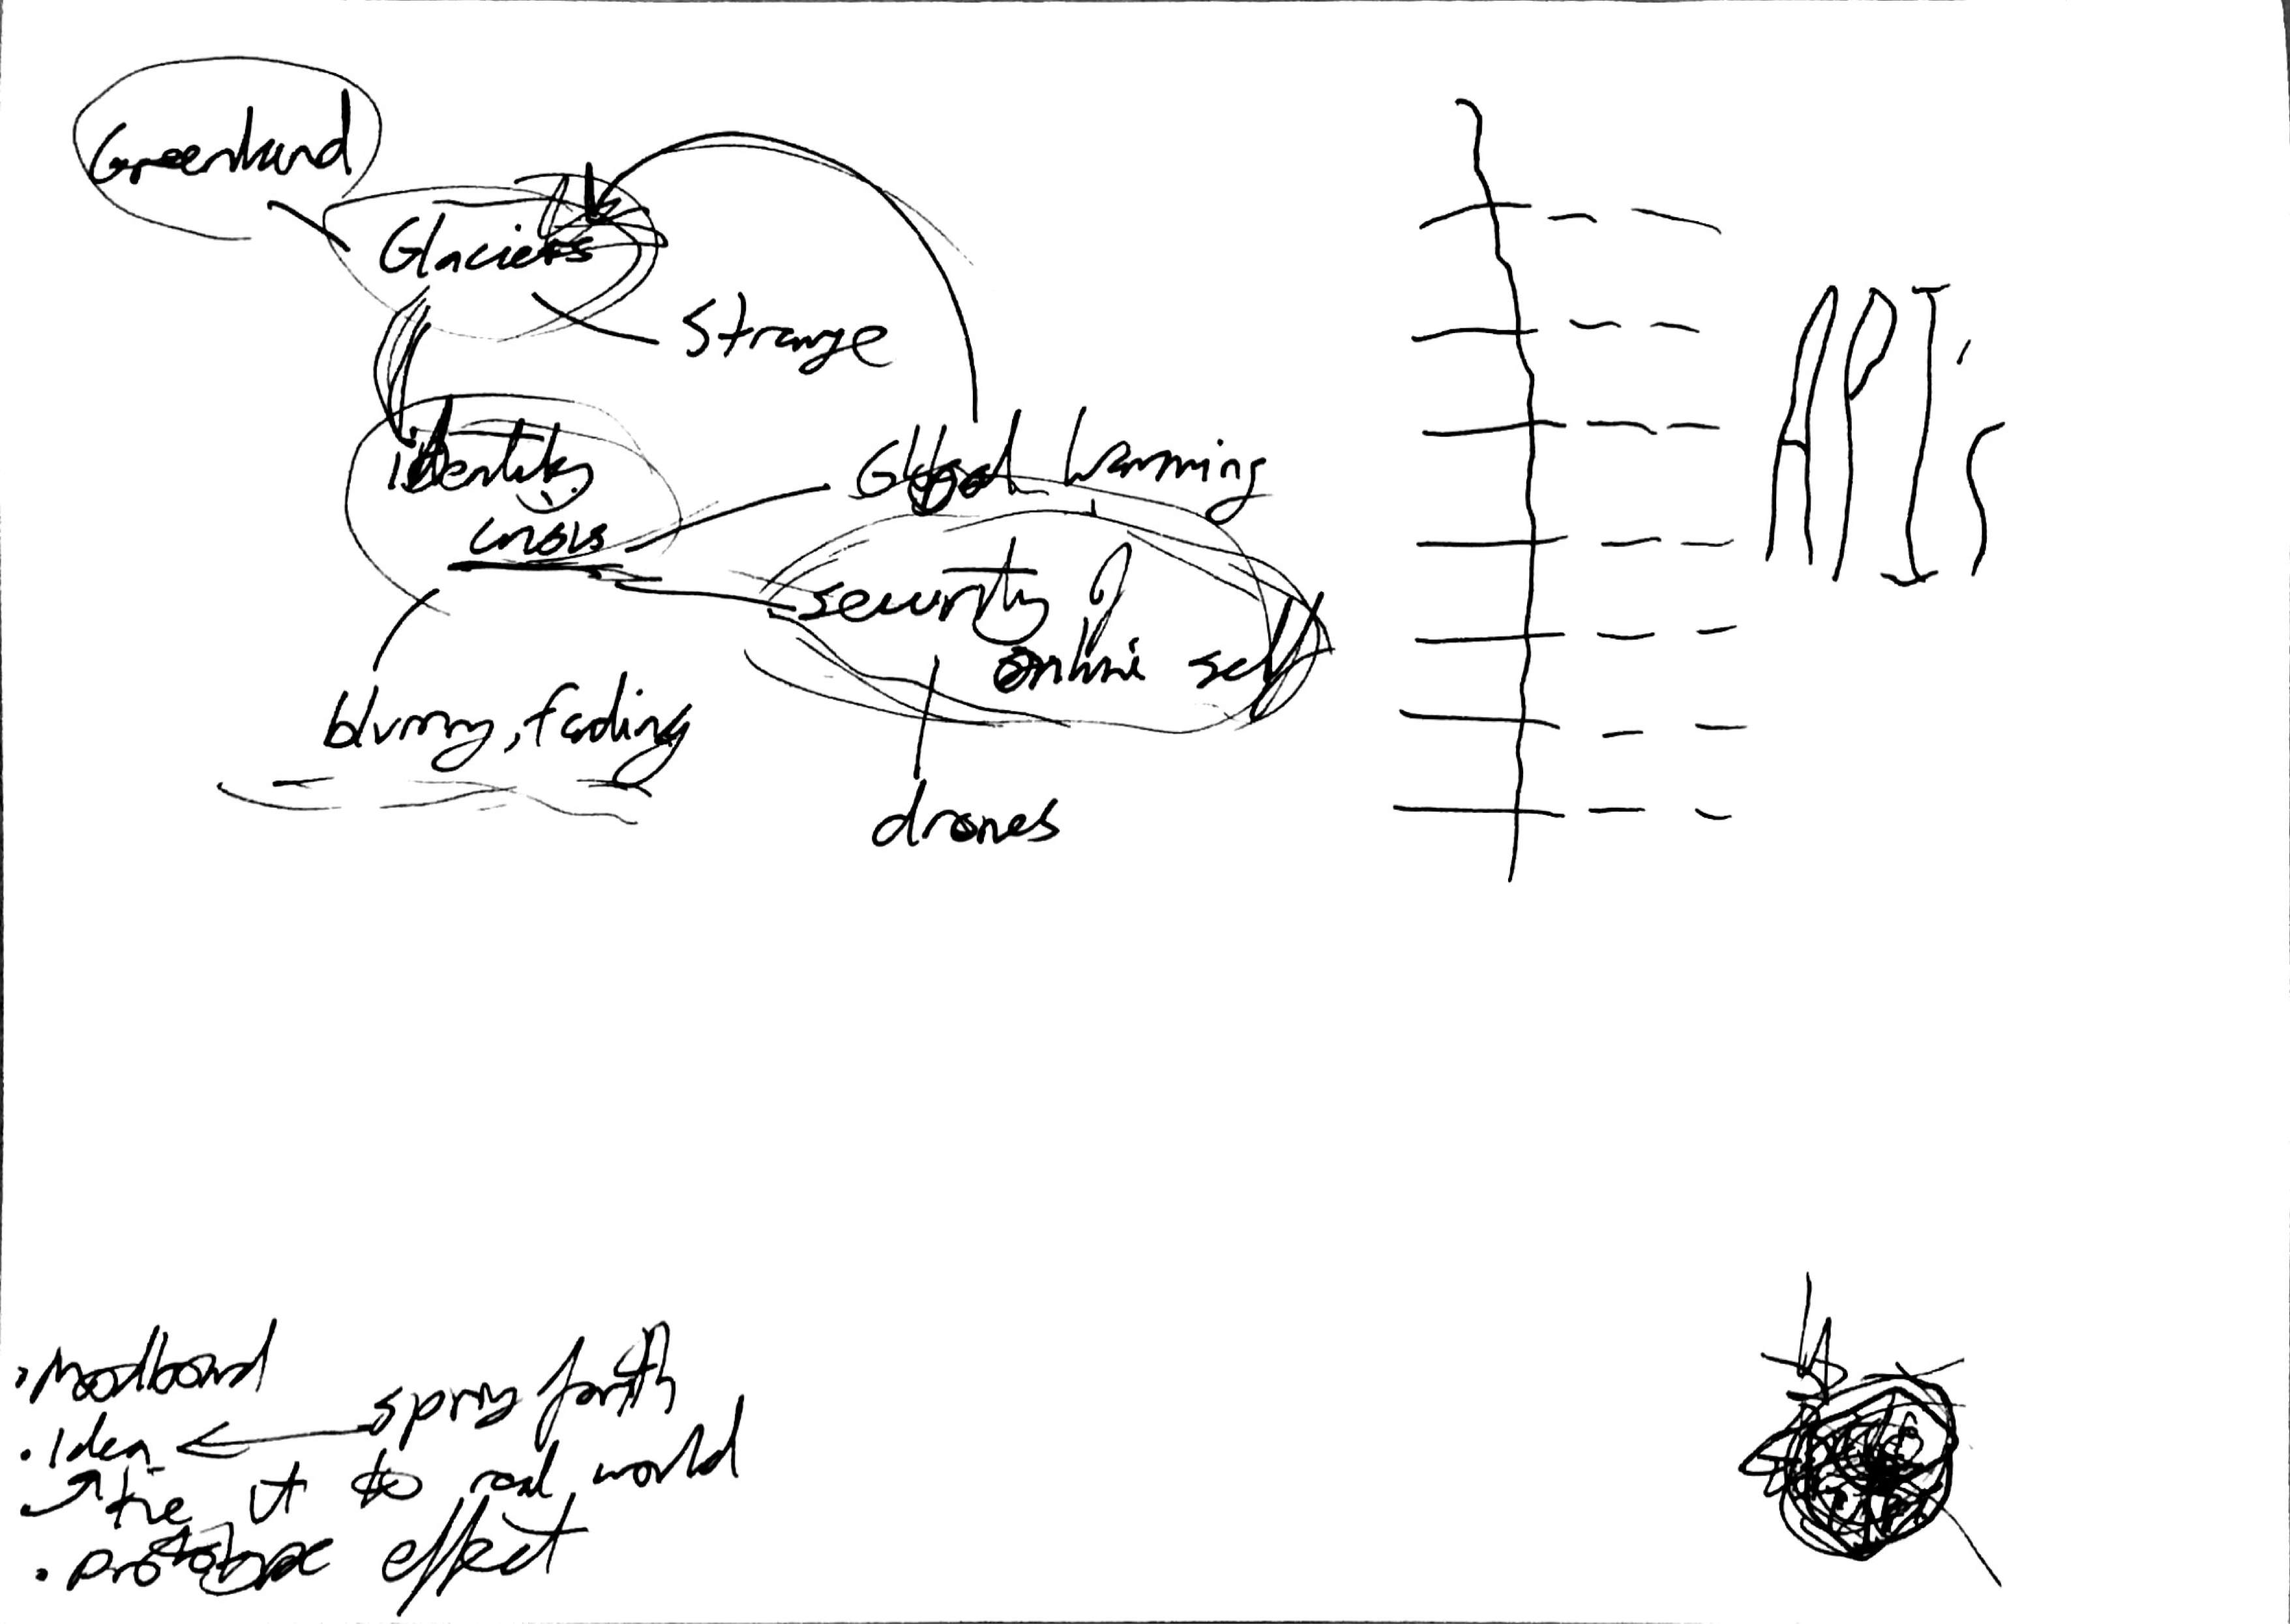 Greenland
Glaciers
Strange
identity
crisis
Global Warming
security of
online self
blurry, fading
drones
API's
• Moodboard
• Idea
spring forth
tie it to real world
• prototype effect